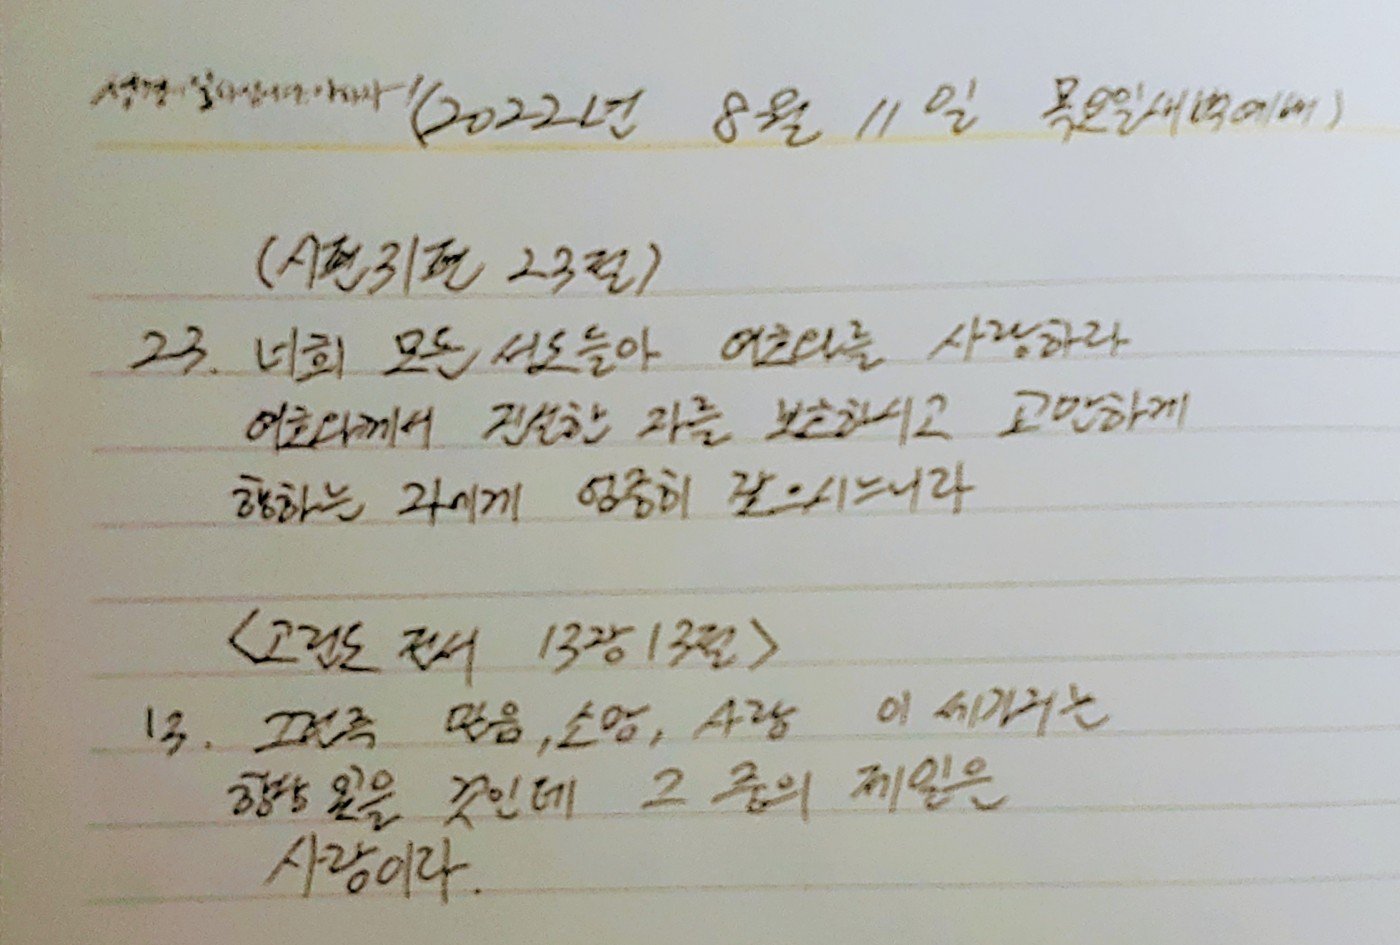 (2022년 8월 11일 목요일새벽예배)
(시편31편 23절)
23. 너희 모든 성도들아 여호와를 사랑하라
여호와께서 진실한 자를 보호하시고 교만하게
행하는 자에게 엄중히 갚으시느니라
<고린도 전서 13장13절>
13. 그런즉 믿음, 소망, 사랑 이 세가지는
항상 있을 것인데 그 중의 제일은
사랑이라.